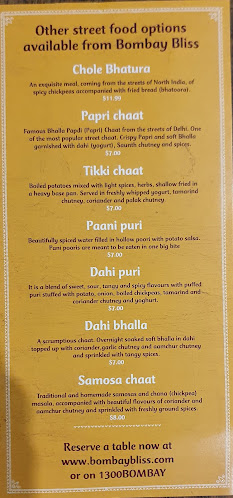 Other street food options
available from Bombay Bliss
Chole Bhatura
An exquisite meal, coming from the streets of North India, of
spicy chickpeas accompanied with fried bread (bhatoora).
$11.99
Papri chaat
Famous Bhalla Papdi (Papri) Chaat from the streets of Delhi. One
of the most popular street chaat. Crispy Papri and soft Bhalla
garnished with dahi (yogurt), Saunth chutney and spices.
$7.00
Tikki chaat
Boiled potatoes mixed with light spices, herbs, shallow fried in
a heavy base pan. Served in freshly whipped yogurt, tamarind
chutney, coriander and palak chutney.
$7.00
Paani puri
Beautifully spiced water filled in hollow poori with potato salsa.
Pani pooris are meant to be eaten in one big bite
$7.00
Dahi puri
It is a blend of sweet, sour, tangy and spicy flavours with puffed
puri stuffed with potato, onion, boiled chickpeas, tamarind and
coriander chutney and yoghurt.
$7.00
Dahi bhalla
A scrumptious chaat. Overnight soaked soft bhalla in dahi
topped up with coriander,garlic chutney and aamchur chutney
and sprinkled with tangy spices.
$7.00
Samosa chaat
Traditional and homemade samosas and chana (chickpea)
masala, accompanied with beautiful flavours of coriander and
aamchur chutney and sprinkled with freshly ground spices
$8.00
Reserve a table now at
www.bombaybliss.com
or on 1300BOMBAY